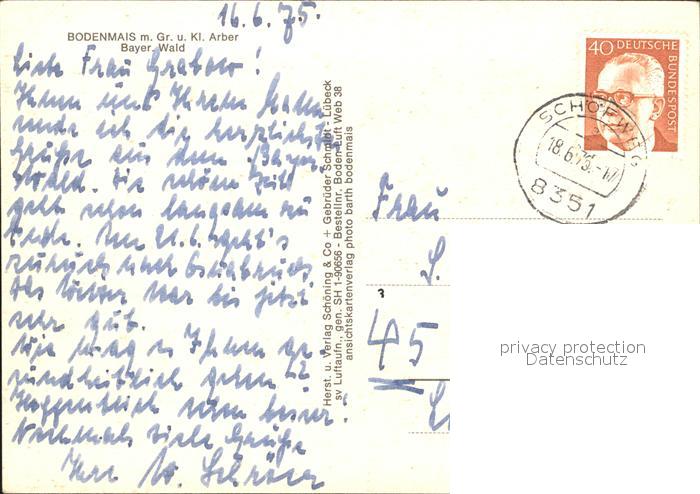 16.6.75.
BODENMAIS m. Gr. u. Kl. Arber
Bayer. Wald
Liebe Frau Grabow!
Ihnen und Ihrem
sende ich die herzlichst
Grüße aus dem Bayer.
Wald. Die schöne Zeit
geht schon langsam zu
Ende. Am 21.6. geht's
zurück nach Osnabrück
Das Wetter war bis jetzt
sehr gut.
Wie mag es Ihnen ge-
sundheitlich gehen?
Hoffentlich schon besser!
Nochmals viele Grüße
Ihre W. Schröder
Herst. u. Verlag Schöning & Co + Gebrüder Schmidt - Lübeck
sv Luftaufn., gen. SH 1-90656 - Bestellnr. Boden-Luft Web 38
ansichtskartenverlag photo barth bodenmais
40 DEUTSCHE
BUNDESPOST
SCHÖFWEG
18.6.75.-17
8351
Frau
L.
45
privacy protection
Datenschutz